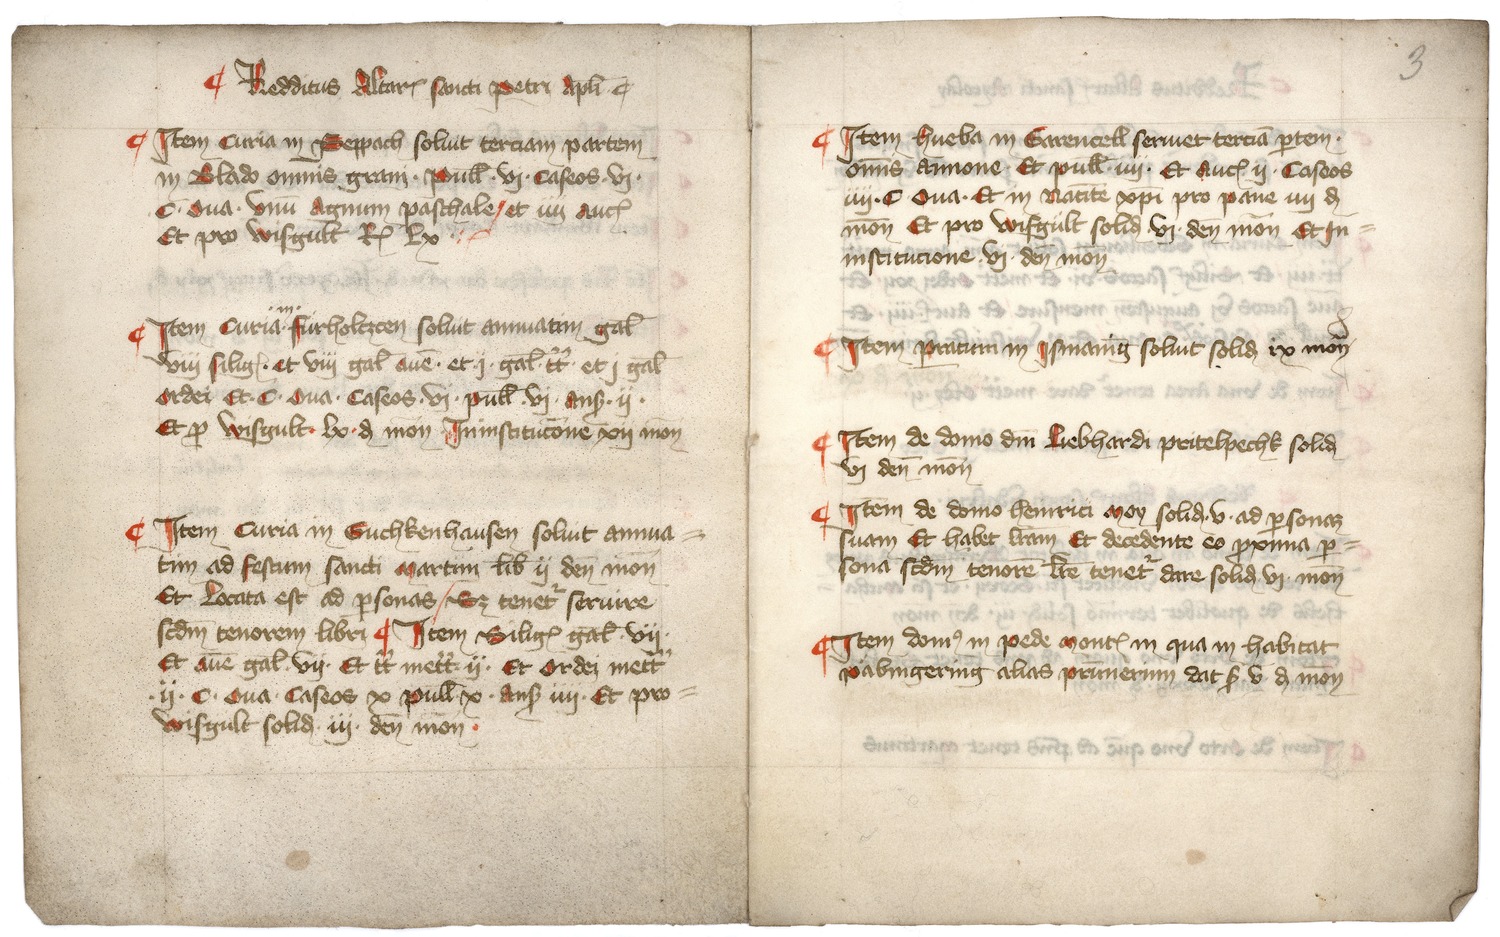 ¶ Redditus Altar sancti Petri apli ¶
¶ Item Curia in Seppach soluit terciam partem
in Blado omnis grani · pull · vi · Caseos · vi ·
· C · Oua · vnū Agnum paschale / et iiij Auc
Et pro wisgult Rͻ Lx
¶ Item Curia in furholtzen soluit annuatim gal
viij silig · et viij gal auē · et · j · gal · tt · et j gal
ordei Et · C · Oua · Caseos · vi · pull · vi · ans · ij ·
Et p wisgult · lx · d mon Ininstitucōne xij mon
¶ Item Curia in Guchkenhausen soluit annua =
tim ad festum sancti Martini lib ij den mon
Et Locata est ad psonas / tenet seruire
scdm tenorem libri ¶ Item Silig gal · vij ·
Et auē gal · vij · Et tt mett · ij · Et Ordei mett
· ij · C · Oua · Caseos x pull · x · ans iiij · Et pro =
wisgult solid · iij · den mon ·
3
¶ Item hueba in Garencell seruet terciā ptem ·
omis annone · Et pull iiij · Et Auc ij · Caseos
iiij · C Oua · Et in Natite xpi pro pane iiij d
mon Et pro wisgult solid vi · den mon Et In =
institucione vi · den mon
¶ Item pratum in Ismanig soluit solid ix mon
d
¶ Item de domo dm Liebhardi pritelpechk solid
vi den mon
¶ Item de domo heinrici Moy solid · v · ad psonaz
suam Et habet lram Et decedente eo pxima p =
sona scdm tenore lre tenet dare solid vi · mon
¶ Item dom in pede Mont in qua in habitat
pabingering alias prunerin dat v · d mon